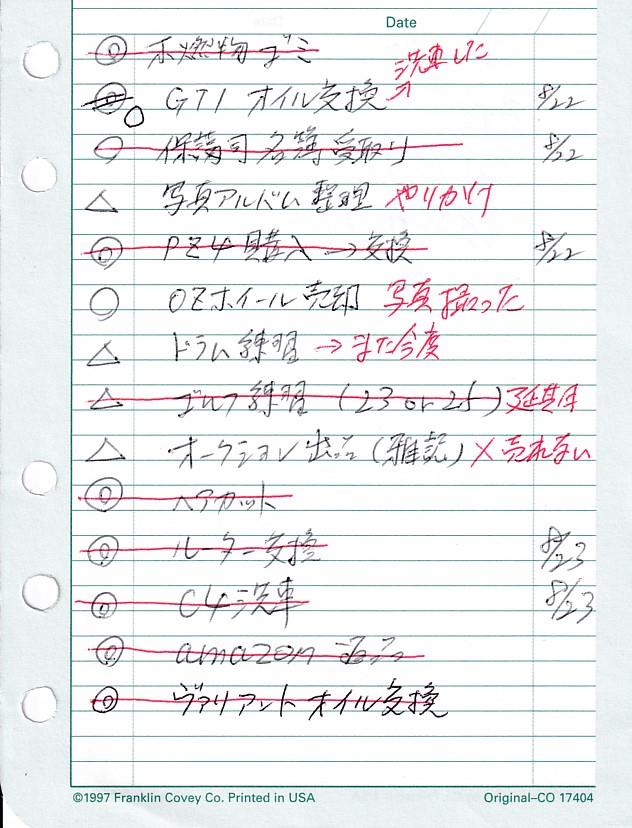 Date
◎ 不燃物ゴミ
◎ ○ GTI オイル交換 → 洗車した 8/22
○ 保護司名簿受取り 8/22
△ 写真アルバム整理 やりかけ
◎ PZ4購入→交換 8/22
○ OZホイール売却 写真撮った
△ ドラム練習 → また今度
△ ゴルフ練習 (23 or 25) 延期
△ オークション出品(雑誌) × 売れない
◎ ヘアカット
◎ ルーター交換 8/23
◎ C4洗車 8/23
◎ amazon 返品
◎ ヴァリアント オイル交換
©1997 Franklin Covey Co. Printed in USA Original–CO 17404